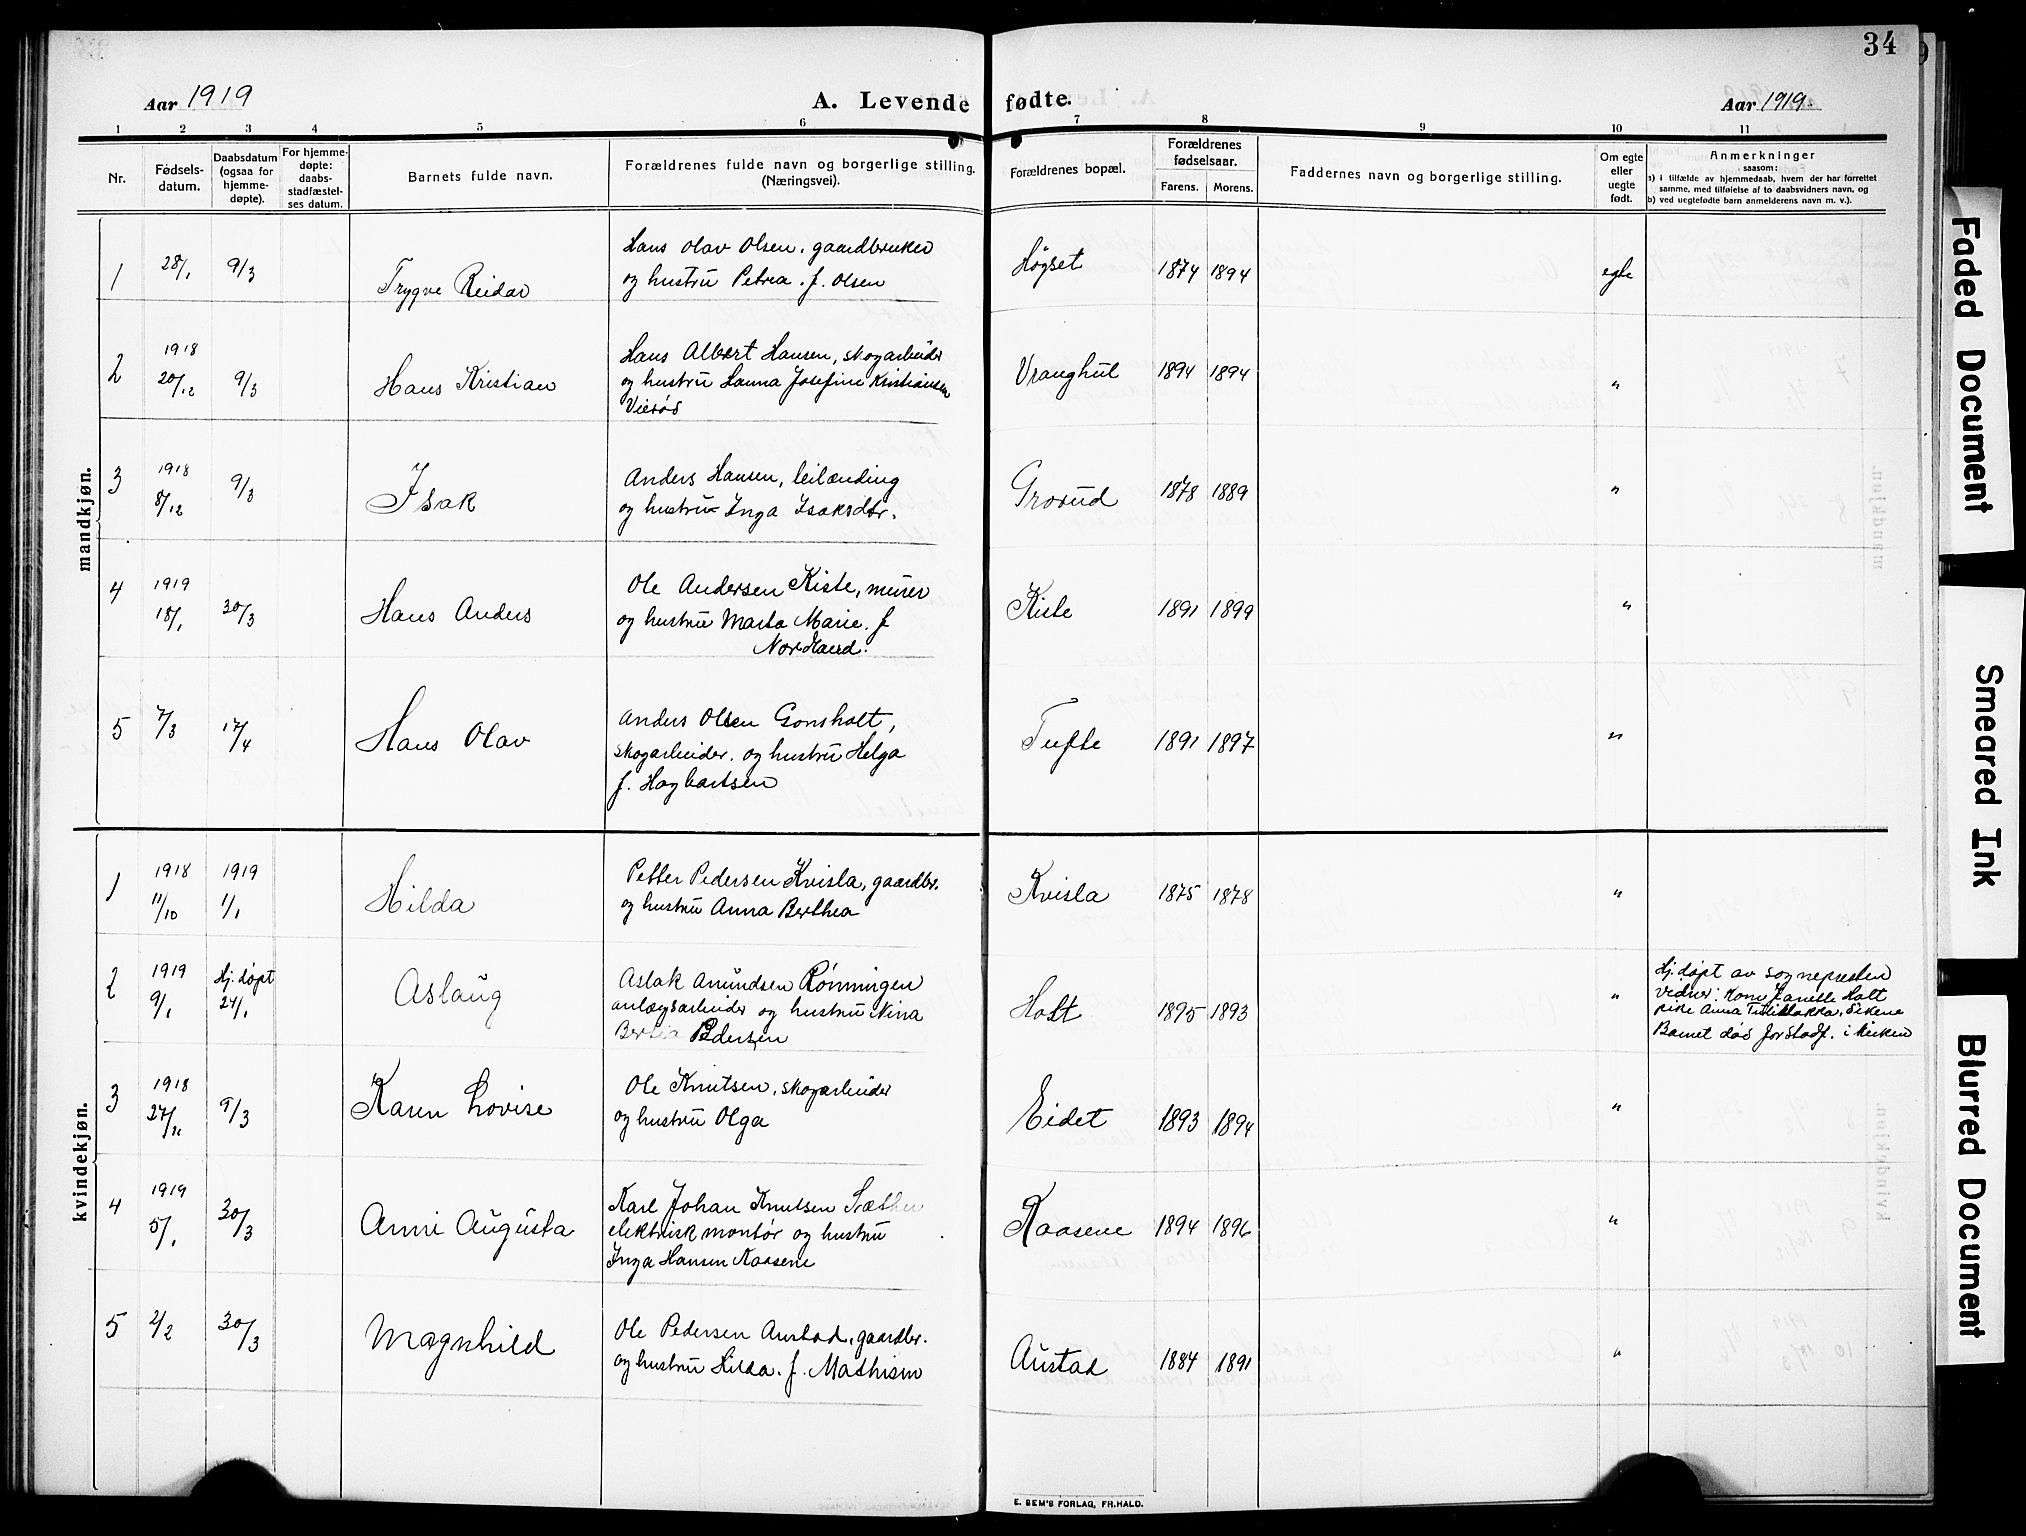 34
Aar 1919
A. Levende fødte.
Aar 1919.
1 2 3 4 5 6 7 8 9 10 11
Nr.
Fødsels-
datum.
Daabsdatum
(ogsaa for
hjemme-
døpte).
For hjemme-
døpte:
daabs-
stadfæstel-
ses datum.
Barnets fulde navn.
Forældrenes fulde navn og borgerlige stilling.
(Næringsvei).
Forældrenes bopæl.
Forældrenes
fødselsaar.
Farens. Morens.
Faddernes navn og borgerlige stilling.
Om egte
eller
uegte
født.
Anmerkninger
saasom:
a) i tilfælde av hjemmedaab, hvem der har forrettet
samme, med tilføielse af to daabsvidners navn, og
b) ved uegtefødte barn anmelderens navn m. v.).
mandkjøn.
1 28/1 9/3 Trygve Reidar
Hans Olav Olsen, gaardbruker
og hustru Petrea. f. Olsen
Høgset 1874 1894 egte
2 1918
20/12 9/3 Hans Kristian
Hans Albert Hansen, skogarbeider
og hustru Hanna Josefine Kristiansen
Vierød
Vranghul 1894 1894 "
3 1918
8/12 9/3 Isak
Anders Hansen, leilænding
og hustru Inga Isaksdtr.
Grorud 1878 1889 "
4 1919
18/1 30/3 Hans Anders
Ole Andersen Kiste, murer
og hustru Marta Marie. f
Nordgaard.
Kiste 1891 1899 "
5 7/3 17/4 Hans Olav
Anders Olsen Gonsholt,
skogarbeider. og hustru Helga
f. Hagbartsen
Tufte 1891 1897 "
kvindekjøn.
1 1918 1919
11/10 1/1 Hilda
Petter Pedersen Kvisla, gaardbr.
og hustru Anna Berthea
Kvisla 1875 1878 "
2 1919 Hj. døpt
9/1 24/1 Aslaug
Aslak Amundsen Rønningen
anlægsarbeider og hustru Nina
Bertia Pedersen
Holt 1895 1893 "
Hj. døpt av sognepresten
vidner: Kone Janette Holt
pike Anna
Barnet død før Stadf. i kirken
3 1918
27/11 9/3 Karen Lovise
Ole Knutsen, skogarbeider
og hustru Olga
Eidet 1893 1894 "
4 1919
5/1 30/3 Anni Augusta
Karl Johan Knutsen Sæther
elektrisk montør og hustru
Inga Hansen Kaasene
Kaasene 1894 1896 "
5 2/2 30/3 Magnhild
Ole Pedersen Austad, gaardbr.
og hustru Hilda. f. Mathisen
Austad 1884 1891 "
E. SEM'S FORLAG, FR.HALD.
Faded Document
Smeared Ink
Blurred Document